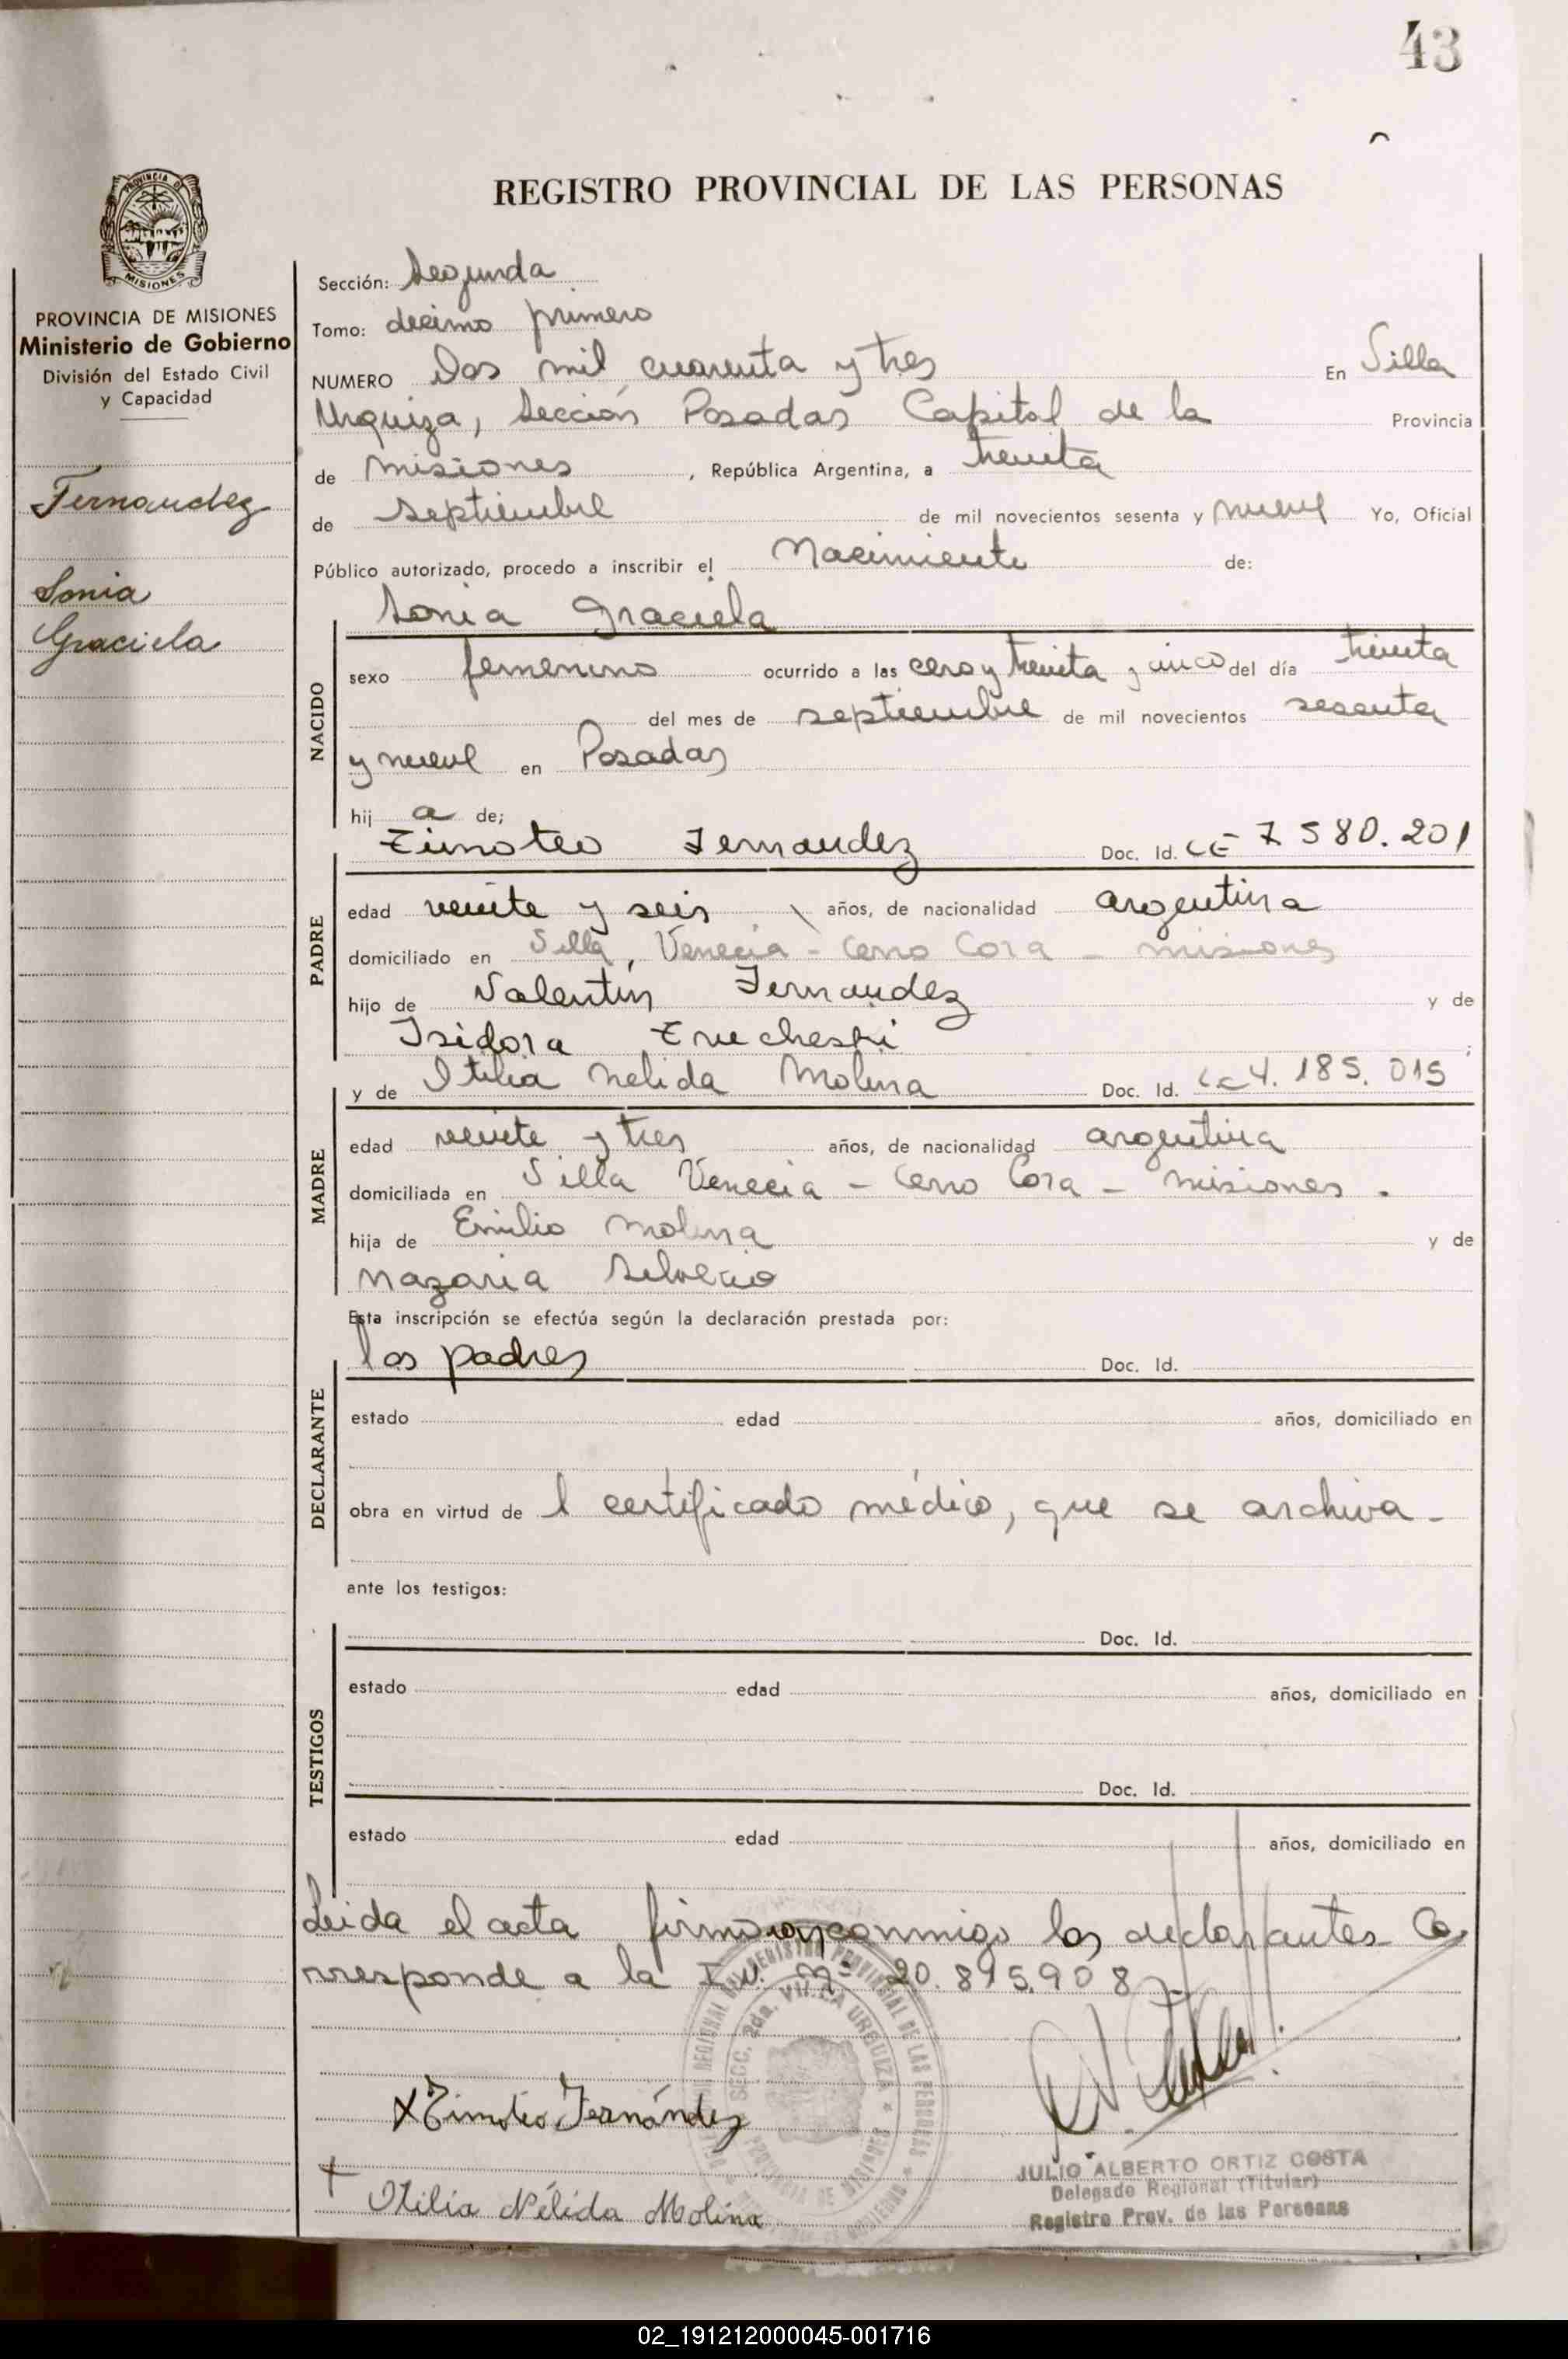 43
REGISTRO PROVINCIAL DE LAS PERSONAS
PROVINCIA DE
MISIONES
PROVINCIA DE MISIONES
Ministerio de Gobierno
División del Estado Civil
y Capacidad
Fernandez
Sonia
Graciela
Sección: Segunda
Tomo: décimo primero
NUMERO Dos mil cuarenta y tres En Villa
Urquiza, Sección Posadas Capital de la Provincia
de Misiones, República Argentina, a treinta
de septiembre de mil novecientos sesenta y nueve Yo, Oficial
Público autorizado, procedo a inscribir el Nacimiento de:
Sonia Graciela
NACIDO
sexo femenino ocurrido a las cero y treinta y cinco del día treinta
del mes de septiembre de mil novecientos sesenta
y nueve en Posadas
hij a de;
Timoteo Fernandez Doc. Id. LE 7 580.201
PADRE
edad veinte y seis años, de nacionalidad argentina
domiciliado en Villa, Venecia - Cerro Cora - Misiones
hijo de Valentín Fernandez y de
Isidora
y de Otilia Nelida Molina Doc. Id. LC 4.185.015
MADRE
edad veinte y tres años, de nacionalidad argentina
domiciliada en Villa Venecia - Cerro Cora - Misiones.
hija de Emilio Molina y de
Nazaria Silverio
Esta inscripción se efectúa según la declaración prestada por:
los padres Doc. Id.
DECLARANTE
estado edad años, domiciliado en
obra en virtud de l certificado médico, que se archiva-
ante los testigos:
Doc. Id.
TESTIGOS
estado edad años, domiciliado en
Doc. Id.
estado edad años, domiciliado en
Leida el acta firman conmigo los declarantes Co
rresponde a la I.N. Nº 20.895.908
SECC. 2da. VILLA URQUIZA
PROVINCIA DE MISIONES
X Timoteo Fernández
+ Otilia Nélida Molina
JULIO ALBERTO ORTIZ COSTA
Delegado Regional (Titular)
Registro Prov. de las Personas
02_191212000045-001716